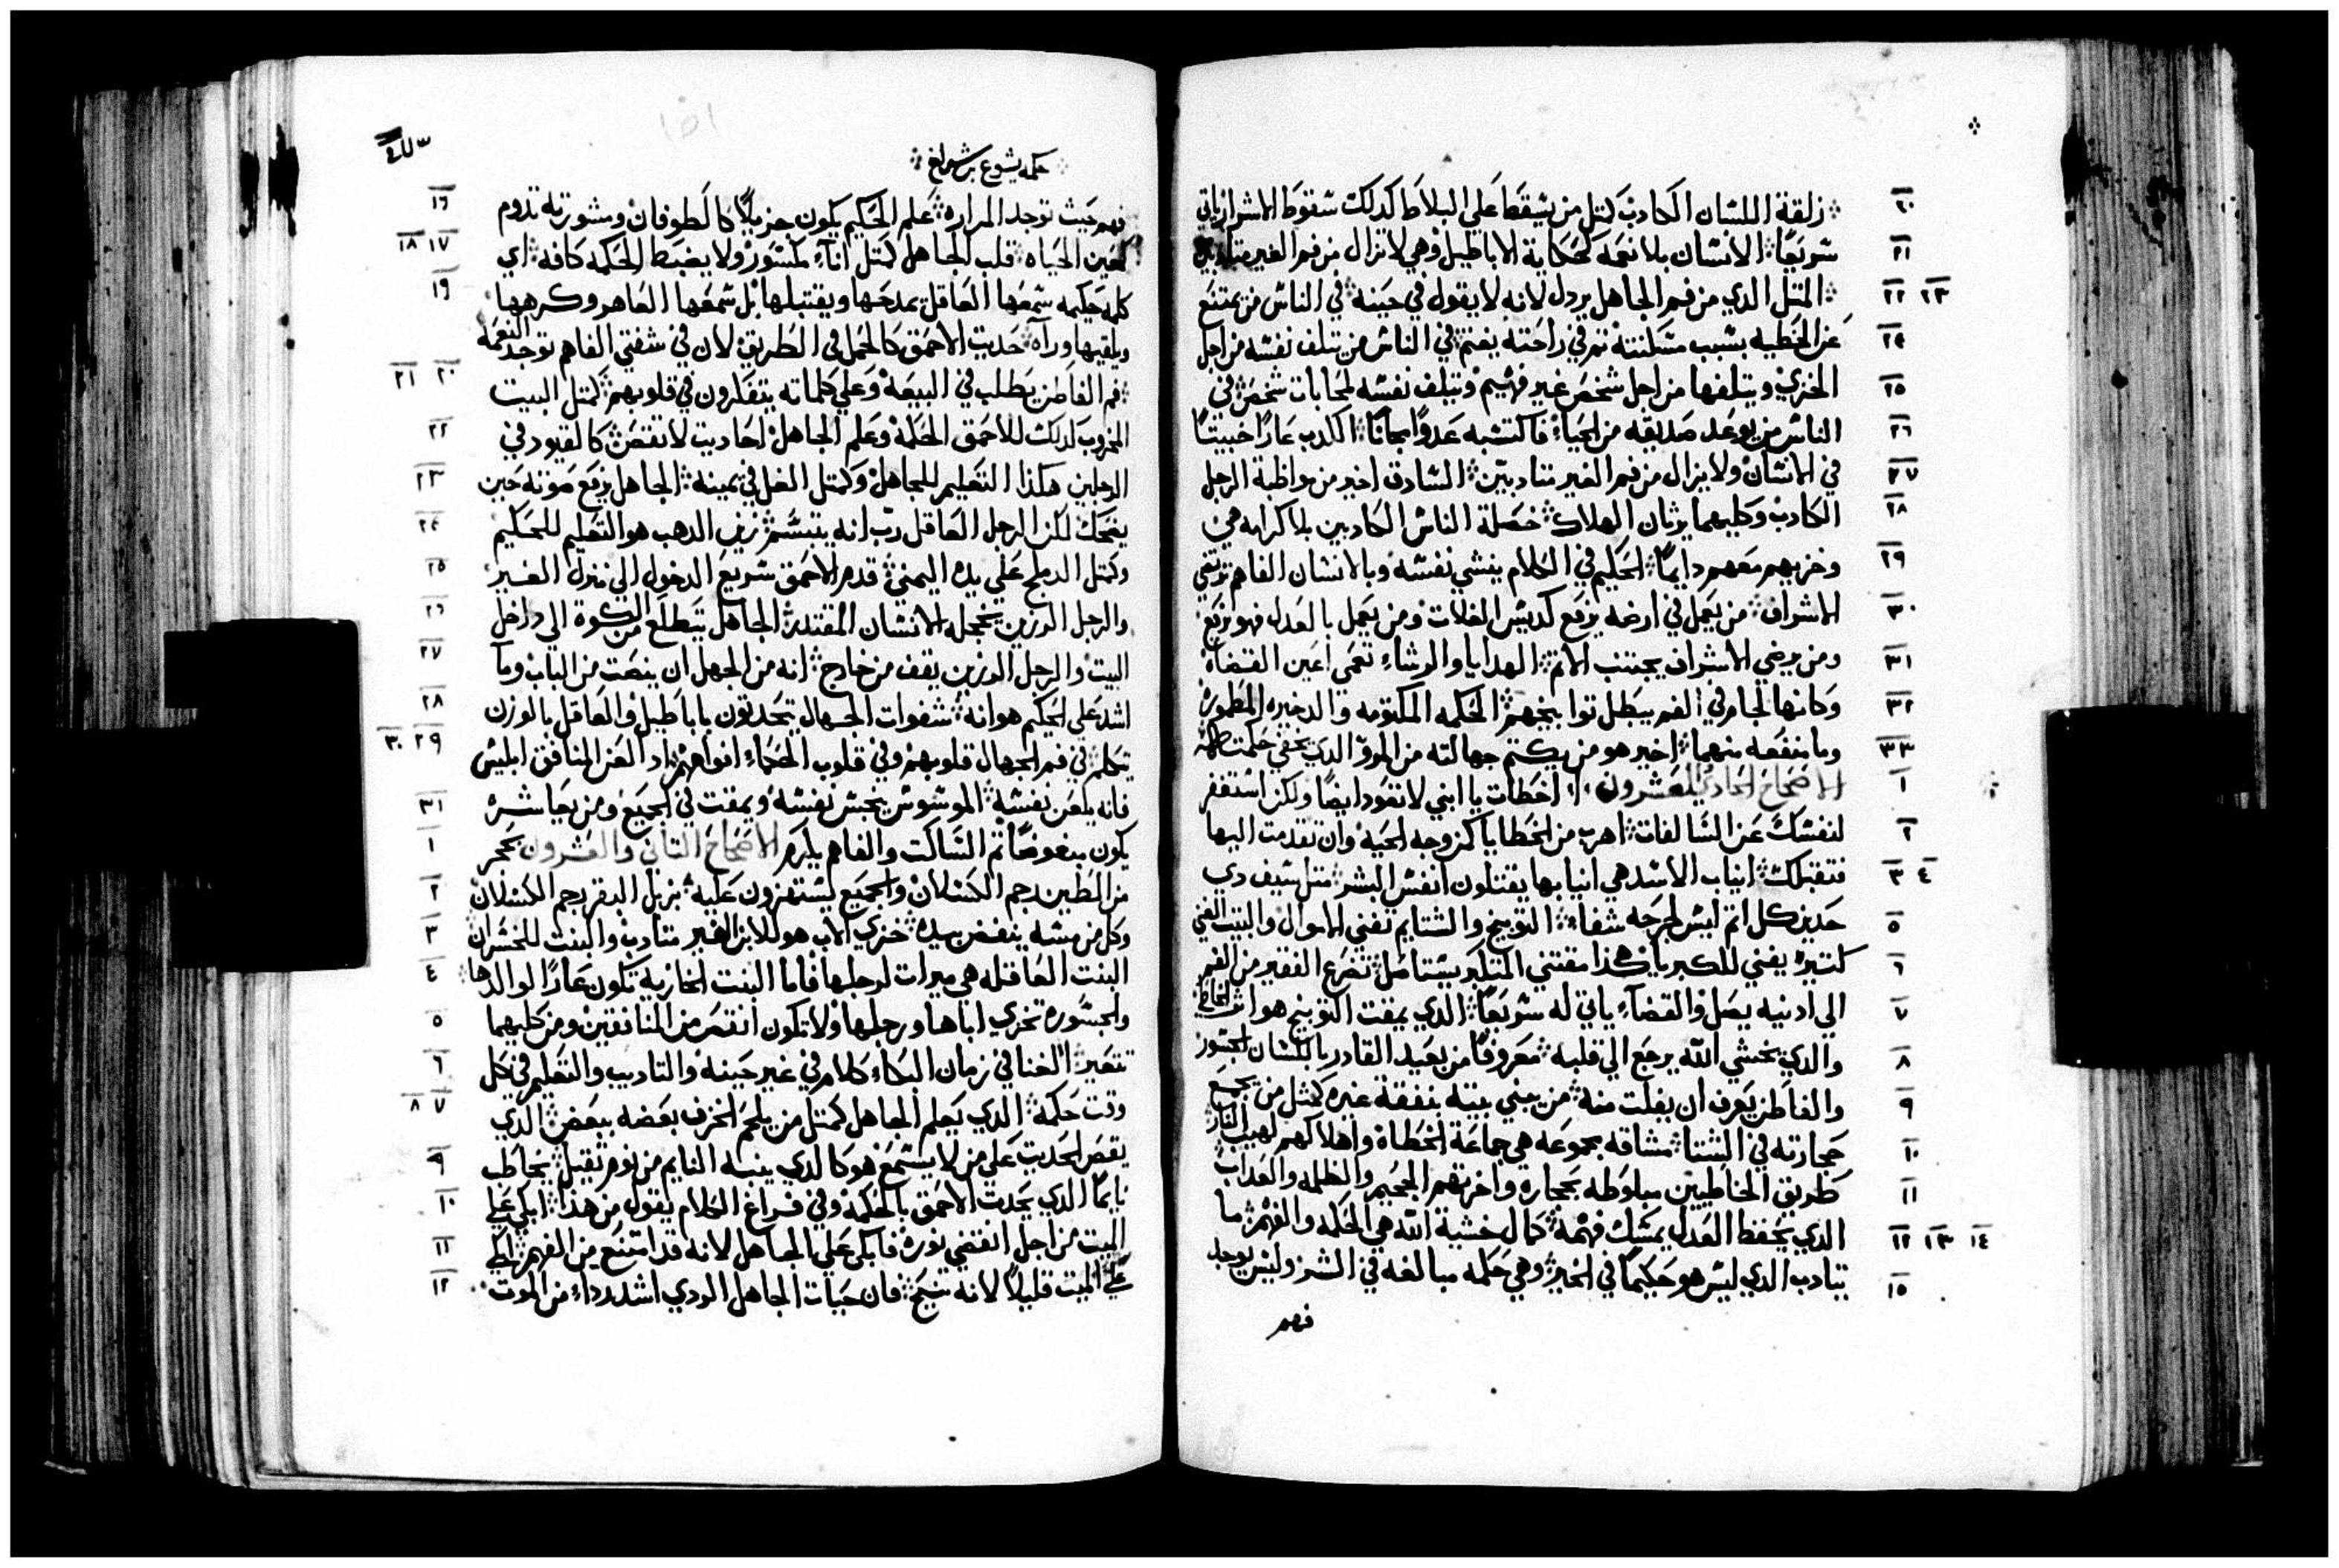 زلقة اللسان الكادب كمتل من يسقط على البلاط كدلك سقوط الاشرار ياتي
٢٠
سريعًا الانسان بلا نعمه كحكاية الاباطيل وهي لا تزال من فم الغير متادبين
٢١
المتل الدي من فم الجاهل يردل لانه لا يقول في حينه في الناس من يمتنع
٢٢ ٢٣
عن الخطيه بسبب مسكنته تم في راحته يغتم في الناس من يتلف نفسه من اجل
٢٤
الخزي ويتلفها من اجل شخص غير فهيم ويتلف نفسه لمحابات شخص في
٢٥
الناس من يوعد صديقه من الحياء فاكتسبه عدوًا مجانًا الكدب عارًا خبيتًا
٢٦
في الانسان ولا يزال من فم الغير متادبين السارق اخير من مواظبة الرجل
٢٧
الكادب وكليهما يرثان الهلاك خصلة الناس الكادبين بلا كرامه هي
٢٨
وخزيهم معهم دايمًا الحكيم في الكلام ينشي نفسه وبالانسان الفاهم ترتقي
٢٩
الاشراف من يعمل في ارضه يرفع كديس الغلات ومن يعمل بالعدل فهو يرفع
٣٠
ومن يرضي الاشراف يجتنب الاتم الهدايا والرشاء تعمي اعين القضاة
٣١
وكانها لجام في الفم يبطل توابيخهم الحكمه المكتومه والدخيره المطموره
٣٢
وما منفعه منهما اخير هو من يكتم جهالته من المرو الدي يخفي حكمته
٣٣
الاصحاح الحادي والعشرون اخطات يا ابني لا تعود ايضًا ولكن استغفر
١
لنفسك عن السالفات اهرب من الخطايا كمن وجه الحيه وان تقدمت اليها
٢
فتقبلك انياب الاسد هي انيابها يقتلون انفس البشر متل سيف دي
٣ ٤
حدين كل اتم ليس لجرحه شفاء التوبيخ والشتايم تفني الاموال والبيت الغني
٥
كتيره يفني للكبرياء هكذا مقتني المتكبر يستاصل تضرع الفقير من الفم
٦
الى ادنيه يصل والقضاء ياتي له سريعًا الدي يمقت التوبيخ هو اتر الخاطي
٧
والدي يخشي الله يرجع الى قلبه معروفًا من بعيد القادر باللسان الجسور
٨
والفاطن يعرف ان يفلت منه من يبني بيته بنفقة غيره كمتل من يجمع
٩
حجارته في الشتا مشاقه مجموعه هي جماعة الخطاة واهلاكهم لهيب النار
١٠
طريق الخاطيين مبلوطه بحجاره واخرتهم الجحيم والظلمه والعداب
١١
الدي يحفظ العدل يمسك فهمه كمال خشية الله هي الحكمه والفهم ما
١٢ ١٣ ١٤
يتادب الدي ليس هو حكيمًا في الخير وهي حكمه مبالغه في الشر وليس يوجد
١٥
فهم
حكمة يشوع بن شيراخ
فهم حيث توجد المراره علم الحكيم يكون جزيلًا كالطوفان ومشورته تدوم
١٦
كعين الحياه قلب الجاهل كمتل اناء مكسور ولا يضبط الحكمه كافه اي
١٧ ١٨
كلمه حكيمه سمعها العاقل يمدحها ويقتبلها بل سمعها العاهر وكرهها
١٩
ويلقيها وراه حديت الاحمق كالحمل في الطريق لان في شفتي الفاهم توجد النعمه
فم الفاطن يطلب في البيعة وعلى كلماته يتفكرون في قلوبهم كمتل البيت
٢٠ ٢١
المخروب كدلك للاحمق الحكمة وعلم الجاهل احاديت لا تقتص كالقيود في
٢٢
الرجلين هكذا التعليم للجاهل وكمتل الغل في يمينه الجاهل يرفع صوته حين
٢٣
يضحك لكن الرجل العاقل رب انه يتبسم زين الدهب هو التعليم للحكيم
٢٤
وكمتل الدملج على يده اليمني قدم الاحمق سريع الدخول الى منزل الغير
٢٥
والرجل الرزين يخجله الانسان المقتدر الجاهل يتطلع من الكوة الى داخل
٢٦
البيت والرجل الرزين يقف من خارج انه من الجهل ان ينصت من الباب وما
٢٧
اشد على الحكيم هوانه شفوات الجهال يتحدتون باباطيل والعاقل بالوزن
٢٨
يتكلم في فم الجهال قلوبهم وفي قلوب الحكماء افواههم اد العن المنافق ابليس
٢٩ ٣٠
فانه يلعن نفسه الموشوش ينجس نفسه ويمقت في الجميع ومن يعاشره
٣١
يكون مبغوضًا تم الساكت والفاهم يكرم الاصحاح التاني والعشرون بحجر
١
من الطين رجم الكسلان والجميع يستهزون عليه بزبل البقر رجم الكسلان
٢
وكل من مسه ينفض يده خزي الاب هو للابن الغير متادب والبنت للخسران
٣
البنت العاقله هي ميرات لرجلها فاما البنت الخازيه تكون عارًا لوالدها
٤
والجسوره تخزي اباها ورجلها ولا تكون انقص من المنافقين ومن كليهما
٥
تتعير الغنا في زمان البكاء كلام في غير حينه والتاديب والتعليم في كل
٦
وقت حكمه الدي يعلم الجاهل كمتل من يلحم الخزف بعضه ببعض الدي
٧ ٨
يقص الحديت على من لا يستمع هو كالدي ينبه النايم من نوم تقيل يخاطب
٩
نايمًا الدي يحدت الاحمق بالحكمة وفي فراغ الكلام يقول من هذا ابكي على
١٠
الميت من اجل انقضي نوره فابكي على الجاهل لانه قد امتنع من الفهم ابكي
١١
على الميت قليلًا لانه تنيح فان حيات الجاهل الردي اشد رداء من الموت
١٢